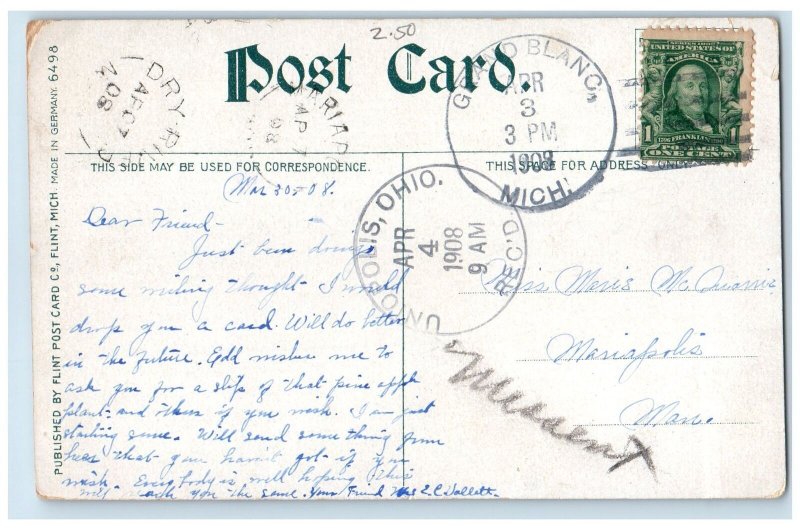 2.50
Post Card.
THIS SIDE MAY BE USED FOR CORRESPONDENCE.
THIS SPACE FOR ADDRESS ONLY.
PUBLISHED BY FLINT POST CARD Co, FLINT, MICH. MADE IN GERMANY. 6498
GRAND BLANC,
APR
3
3 PM
1908
MICH.
UNIOPOLIS, OHIO.
APR
4
1908
9 AM
REC'D.
UNITED STATES OF
AMERICA
FRANKLIN
POSTAGE
1 ONE CENT 1
DRY RI
AP 7
08
MARIAP
AP 7
08
Mar 30-08.
Dear Friend-
Just been doing
some writing thought I would
drop you a card. Will do better
in the future. Edd wishes me to
ask you for a slip of that pine apple
plant- and then if you wish. I am just
starting some. Will send some thing from
here that you havn't got if you
wish. Everybody is well hoping this
will you the same. Your Friend Mrs E.C.
Miss Marie
Mariapolis
Man.
Missent